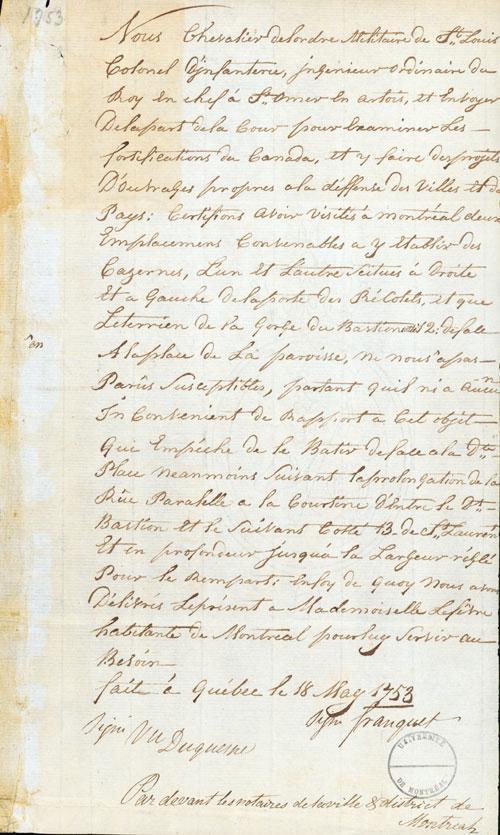 1753
Nous Chevalier delordre Militaire de St. Louis
Colonel D'infanterie, jngenieur ordinaire du
Roy En chef à St. Omer En artois, et Envoyer
Delapart dela Cour pour Examiner Les
fortifications du Canada, et y faire des projets
D'ouvrages propres a la déffense des Villes et du
Pays: Certifions avoir visités à montréal deux
Emplacemens Convenables a y Etablir des
Cazernes, L'un Et L'autre scitués à Droite
Et a Gauche delaporte des Récolets, et que
Leterrien de la Gorge du Bastion 12: deface
A laplace de La paroisse, ne nous apas
Parüs susceptibles, partant quil ni a Aucun
In Convenient de Rapport a Cet objet
Qui Empéche de le Batir deface a la dte.
Place neanmoins suivant laprolongation de la
Rüe Paralelle a la Courtine d'Entre le dt.
Bastion et le suivant Cotte 13. de St. Laurent
Et en profondeur jusqua la Largeur réglé
Pour le Rempart: Enfoy de Quoy nous avons
Délivrés Leprésent a Mademoiselle Lefévre
habitante de Montreal pourluy servir au
Besoin
fait à Québec le 18 May 1753
signé franquet
signé Vu Duquesne
UNIVERSITÉ
DE MONTRÉAL
Par devant les notaires de la ville & district de
Montreal